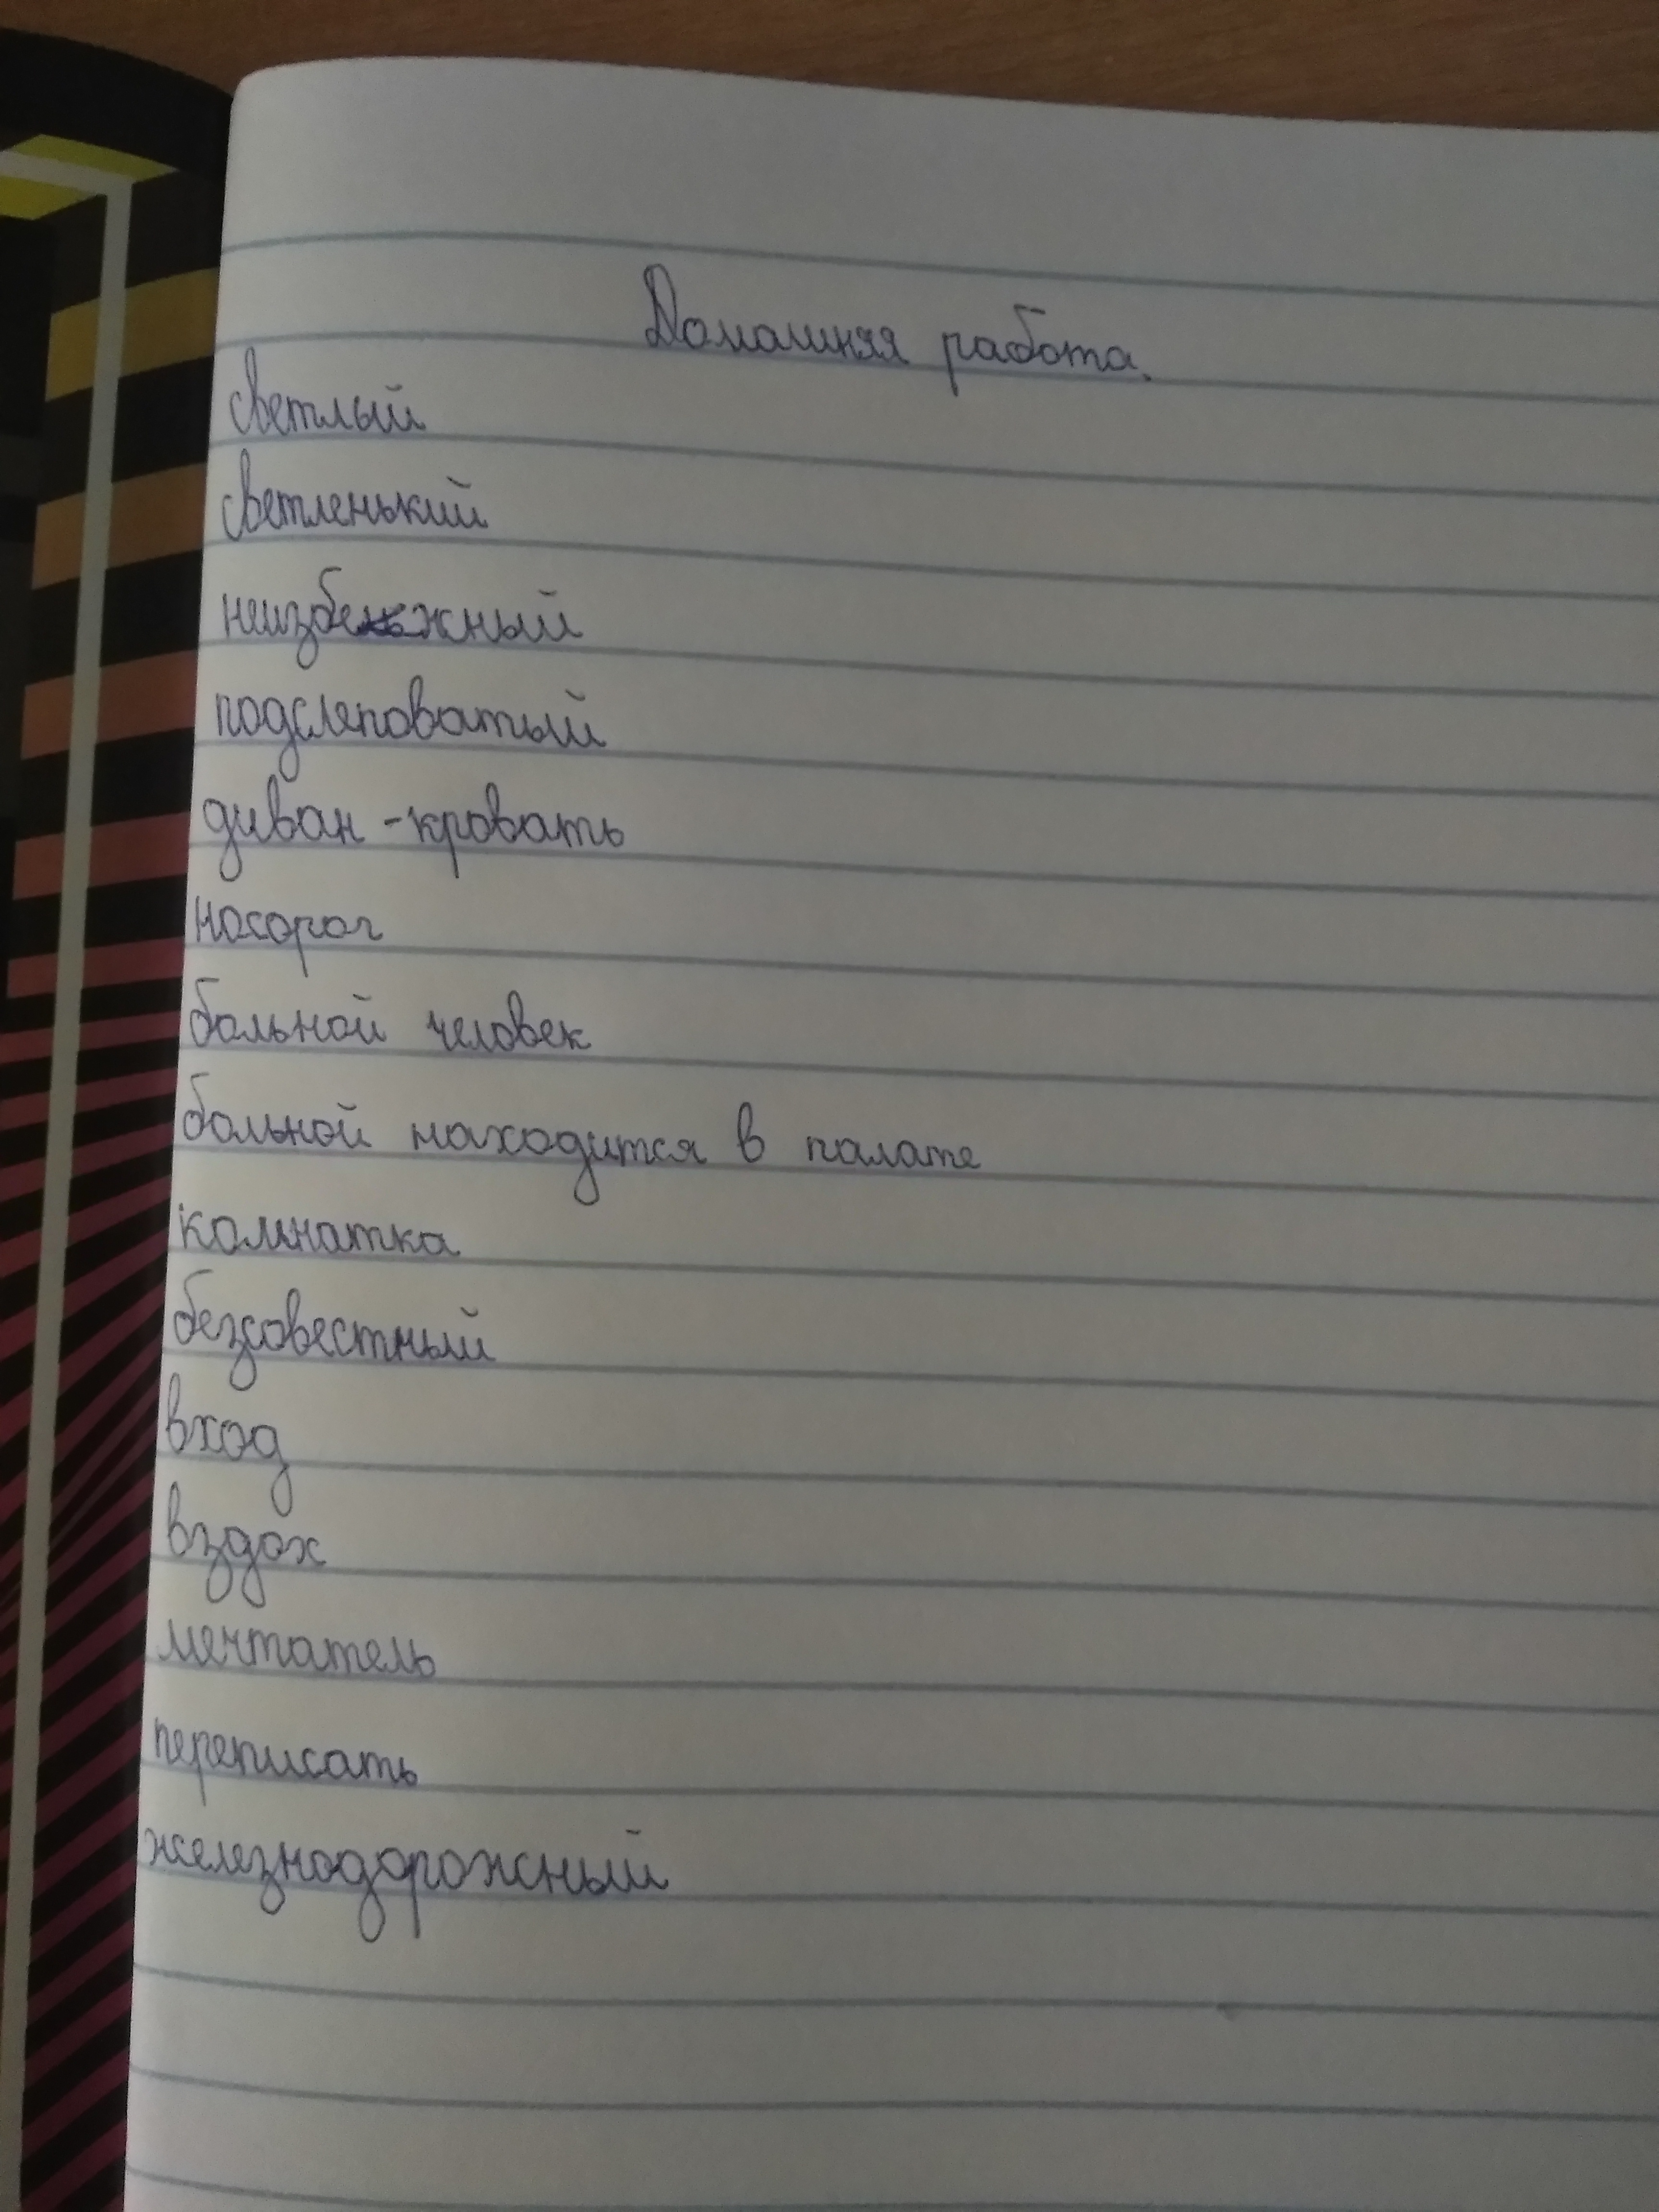 Домашняя работа.
светлый
светленький
неизбежный
подслеповатый
диван-кровать
носорог
больной человек
больной находится в палате
комнатка
безсовестный
вход
вздох
мечтатель
переписать
железнодорожный